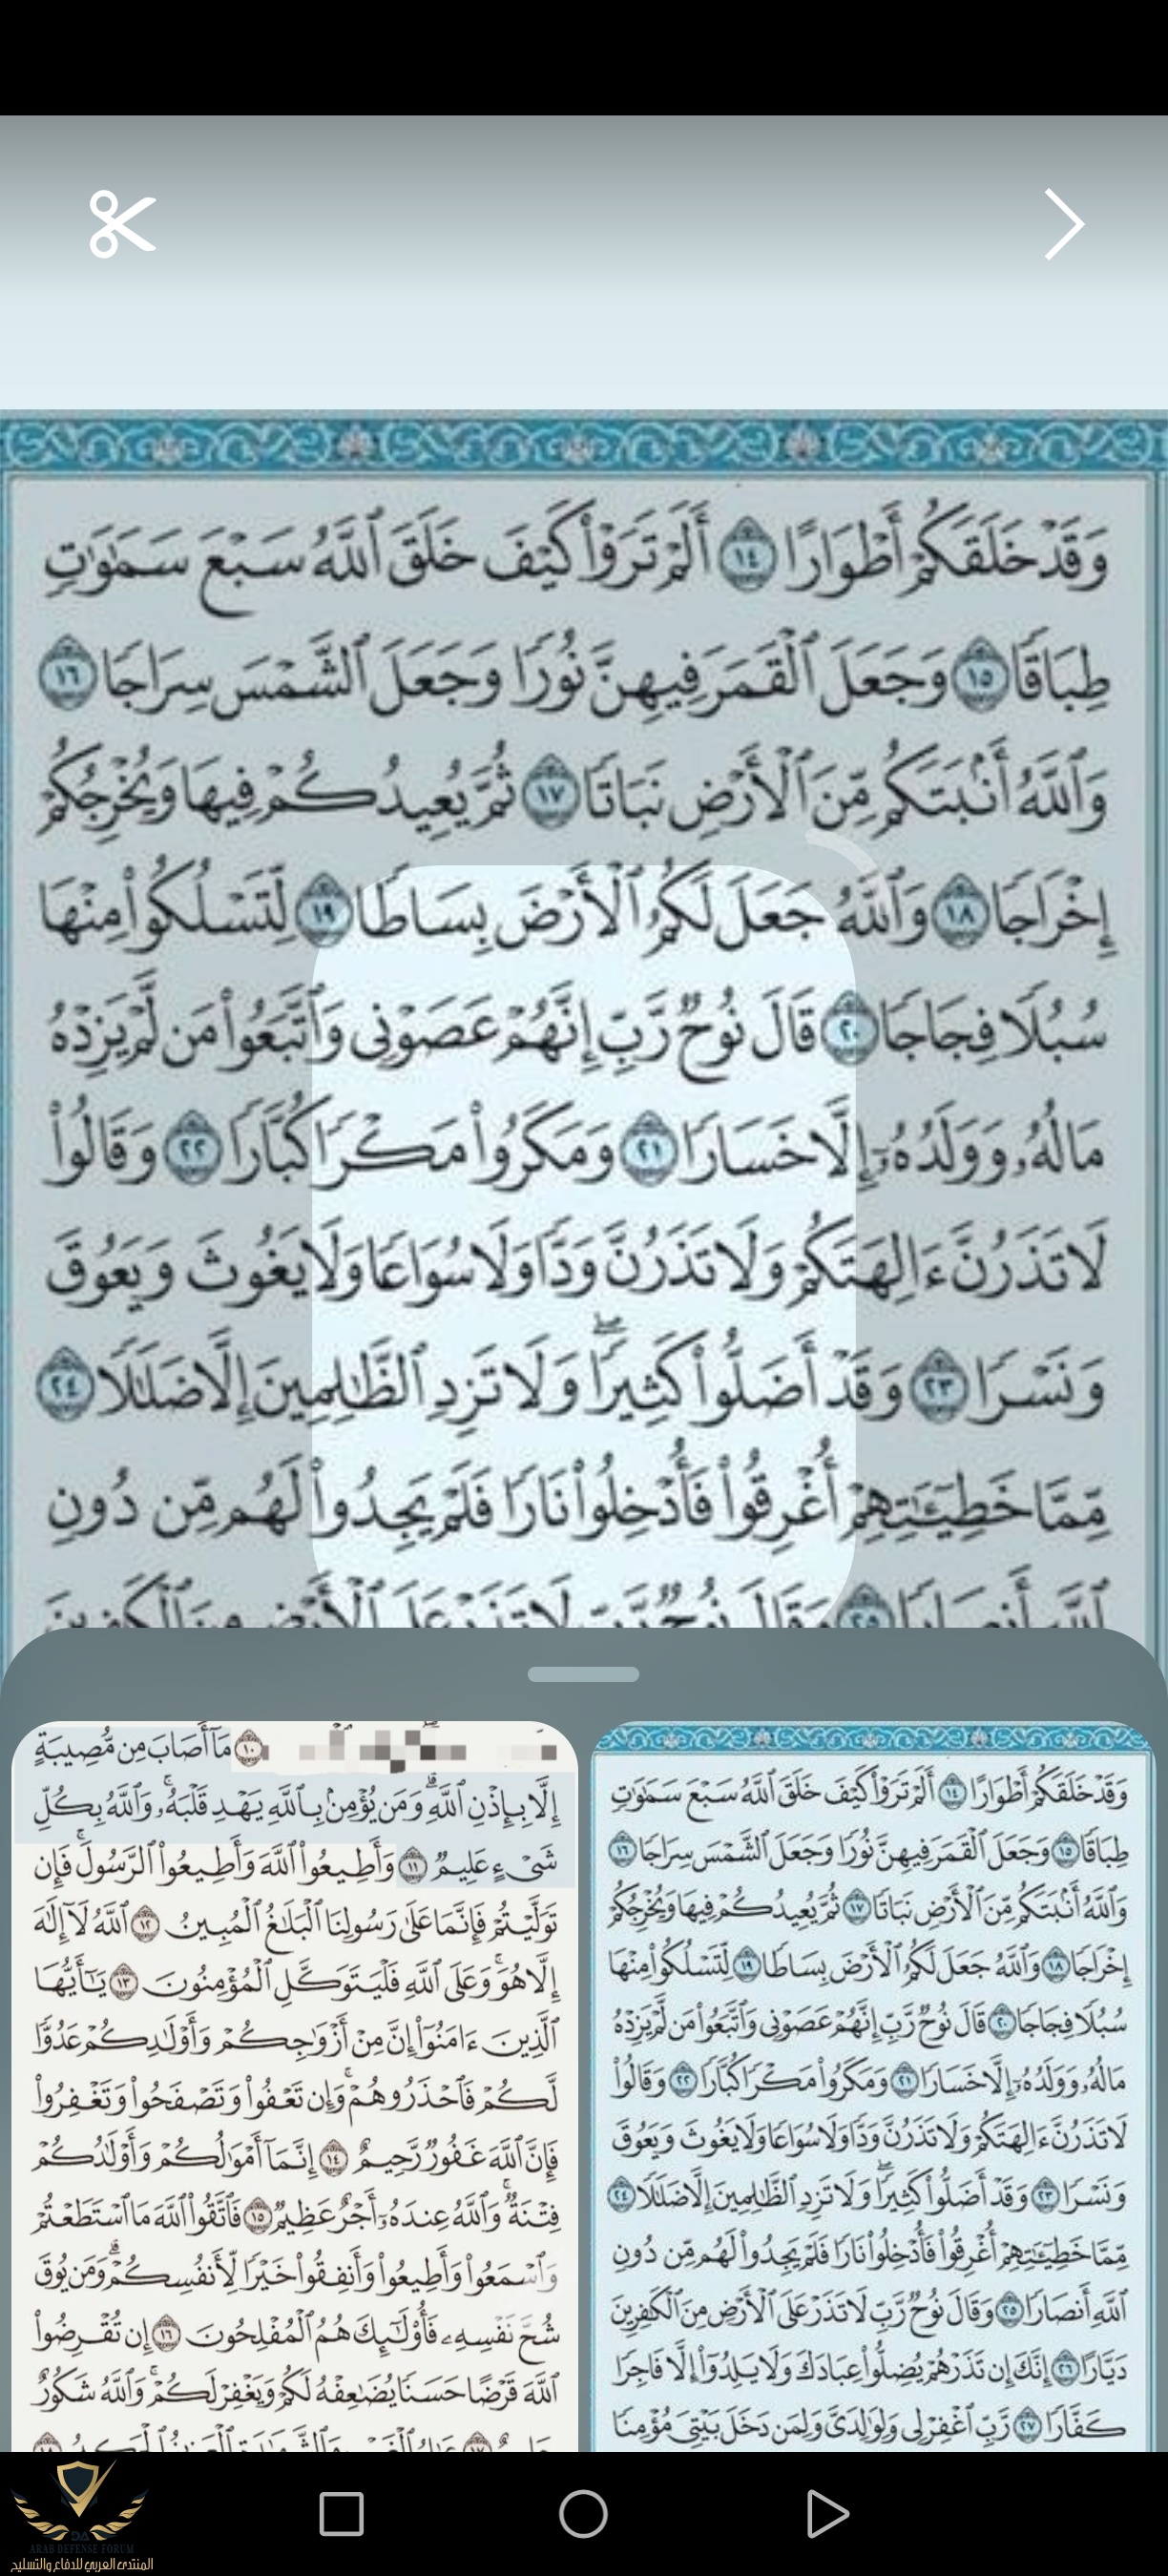 وَقَدْ خَلَقَكُمْ أَطْوَارًا ١٤ أَلَمْ تَرَوْا۟ كَيْفَ خَلَقَ ٱللَّهُ سَبْعَ سَمَٰوَٰتٍ
طِبَاقًا ١٥ وَجَعَلَ ٱلْقَمَرَ فِيهِنَّ نُورًا وَجَعَلَ ٱلشَّمْسَ سِرَاجًا ١٦
وَٱللَّهُ أَنۢبَتَكُم مِّنَ ٱلْأَرْضِ نَبَاتًا ١٧ ثُمَّ يُعِيدُكُمْ فِيهَا وَيُخْرِجُكُمْ
إِخْرَاجًا ١٨ وَٱللَّهُ جَعَلَ لَكُمُ ٱلْأَرْضَ بِسَاطًا ١٩ لِّتَسْلُكُوا۟ مِنْهَا
سُبُلًا فِجَاجًا ٢٠ قَالَ نُوحٌ رَّبِّ إِنَّهُمْ عَصَوْنِى وَٱتَّبَعُوا۟ مَن لَّمْ يَزِدْهُ
مَالُهُۥ وَوَلَدُهُۥٓ إِلَّا خَسَارًا ٢١ وَمَكَرُوا۟ مَكْرًا كُبَّارًا ٢٢ وَقَالُوا۟
لَا تَذَرُنَّ ءَالِهَتَكُمْ وَلَا تَذَرُنَّ وَدًّا وَلَا سُوَاعًا وَلَا يَغُوثَ وَيَعُوقَ
وَنَسْرًا ٢٣ وَقَدْ أَضَلُّوا۟ كَثِيرًا ۖ وَلَا تَزِدِ ٱلظَّٰلِمِينَ إِلَّا ضَلَٰلًا ٢٤
مِّمَّا خَطِيٓـَٰٔتِهِمْ أُغْرِقُوا۟ فَأُدْخِلُوا۟ نَارًا فَلَمْ يَجِدُوا۟ لَهُم مِّن دُونِ
ٱللَّهِ أَنصَارًا ٢٥ وَقَالَ نُوحٌ رَّبِّ لَا تَذَرْ عَلَى ٱلْأَرْضِ مِنَ ٱلْكَٰفِرِينَ
وَقَدْ خَلَقَكُمْ أَطْوَارًا ١٤ أَلَمْ تَرَوْا۟ كَيْفَ خَلَقَ ٱللَّهُ سَبْعَ سَمَٰوَٰتٍ
طِبَاقًا ١٥ وَجَعَلَ ٱلْقَمَرَ فِيهِنَّ نُورًا وَجَعَلَ ٱلشَّمْسَ سِرَاجًا ١٦
وَٱللَّهُ أَنۢبَتَكُم مِّنَ ٱلْأَرْضِ نَبَاتًا ١٧ ثُمَّ يُعِيدُكُمْ فِيهَا وَيُخْرِجُكُمْ
إِخْرَاجًا ١٨ وَٱللَّهُ جَعَلَ لَكُمُ ٱلْأَرْضَ بِسَاطًا ١٩ لِّتَسْلُكُوا۟ مِنْهَا
سُبُلًا فِجَاجًا ٢٠ قَالَ نُوحٌ رَّبِّ إِنَّهُمْ عَصَوْنِى وَٱتَّبَعُوا۟ مَن لَّمْ يَزِدْهُ
مَالُهُۥ وَوَلَدُهُۥٓ إِلَّا خَسَارًا ٢١ وَمَكَرُوا۟ مَكْرًا كُبَّارًا ٢٢ وَقَالُوا۟
لَا تَذَرُنَّ ءَالِهَتَكُمْ وَلَا تَذَرُنَّ وَدًّا وَلَا سُوَاعًا وَلَا يَغُوثَ وَيَعُوقَ
وَنَسْرًا ٢٣ وَقَدْ أَضَلُّوا۟ كَثِيرًا ۖ وَلَا تَزِدِ ٱلظَّٰلِمِينَ إِلَّا ضَلَٰلًا ٢٤
مِّمَّا خَطِيٓـَٰٔتِهِمْ أُغْرِقُوا۟ فَأُدْخِلُوا۟ نَارًا فَلَمْ يَجِدُوا۟ لَهُم مِّن دُونِ
ٱللَّهِ أَنصَارًا ٢٥ وَقَالَ نُوحٌ رَّبِّ لَا تَذَرْ عَلَى ٱلْأَرْضِ مِنَ ٱلْكَٰفِرِينَ
دَيَّارًا ٢٦ إِنَّكَ إِن تَذَرْهُمْ يُضِلُّوا۟ عِبَادَكَ وَلَا يَلِدُوٓا۟ إِلَّا فَاجِرًا
كَفَّارًا ٢٧ رَّبِّ ٱغْفِرْ لِى وَلِوَٰلِدَىَّ وَلِمَن دَخَلَ بَيْتِىَ مُؤْمِنًا
١٠ مَآ أَصَابَ مِن مُّصِيبَةٍ
إِلَّا بِإِذْنِ ٱللَّهِ ۗ وَمَن يُؤْمِنۢ بِٱللَّهِ يَهْدِ قَلْبَهُۥ ۚ وَٱللَّهُ بِكُلِّ
شَىْءٍ عَلِيمٌ ١١ وَأَطِيعُوا۟ ٱللَّهَ وَأَطِيعُوا۟ ٱلرَّسُولَ ۚ فَإِن
تَوَلَّيْتُمْ فَإِنَّمَا عَلَىٰ رَسُولِنَا ٱلْبَلَٰغُ ٱلْمُبِينُ ١٢ ٱللَّهُ لَآ إِلَٰهَ
إِلَّا هُوَ ۚ وَعَلَى ٱللَّهِ فَلْيَتَوَكَّلِ ٱلْمُؤْمِنُونَ ١٣ يَٰٓأَيُّهَا
ٱلَّذِينَ ءَامَنُوٓا۟ إِنَّ مِنْ أَزْوَٰجِكُمْ وَأَوْلَٰدِكُمْ عَدُوًّا
لَّكُمْ فَٱحْذَرُوهُمْ ۚ وَإِن تَعْفُوا۟ وَتَصْفَحُوا۟ وَتَغْفِرُوا۟
فَإِنَّ ٱللَّهَ غَفُورٌ رَّحِيمٌ ١٤ إِنَّمَآ أَمْوَٰلُكُمْ وَأَوْلَٰدُكُمْ
فِتْنَةٌ ۚ وَٱللَّهُ عِندَهُۥٓ أَجْرٌ عَظِيمٌ ١٥ فَٱتَّقُوا۟ ٱللَّهَ مَا ٱسْتَطَعْتُمْ
وَٱسْمَعُوا۟ وَأَطِيعُوا۟ وَأَنفِقُوا۟ خَيْرًا لِّأَنفُسِكُمْ ۗ وَمَن يُوقَ
شُحَّ نَفْسِهِۦ فَأُو۟لَٰٓئِكَ هُمُ ٱلْمُفْلِحُونَ ١٦ إِن تُقْرِضُوا۟
ٱللَّهَ قَرْضًا حَسَنًا يُضَٰعِفْهُ لَكُمْ وَيَغْفِرْ لَكُمْ ۚ وَٱللَّهُ شَكُورٌ
ARAB DEFENSE FORUM
المنتدى العربي للدفاع والتسليح